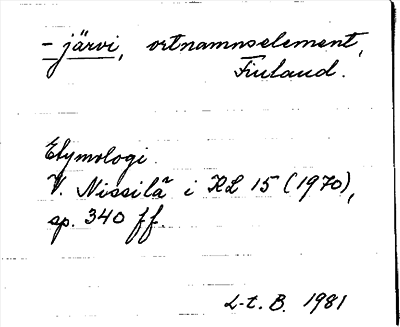 - järvi, ortnamnselement,
Finland.
Etymologi.
V. Nissilä i KL 15 (1970),
sp. 340 ff.
L-t. B. 1981